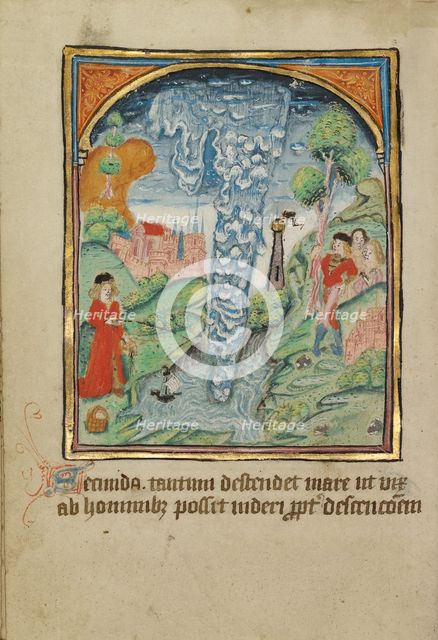 Heritage
Heritage
Heritage
©
Heritage
Heritage
Heritage
Heritage
Heritage
Secunda. tantum descendet mare ut vix
ab hominibꝫ possit videri ꝓpt' descencōem